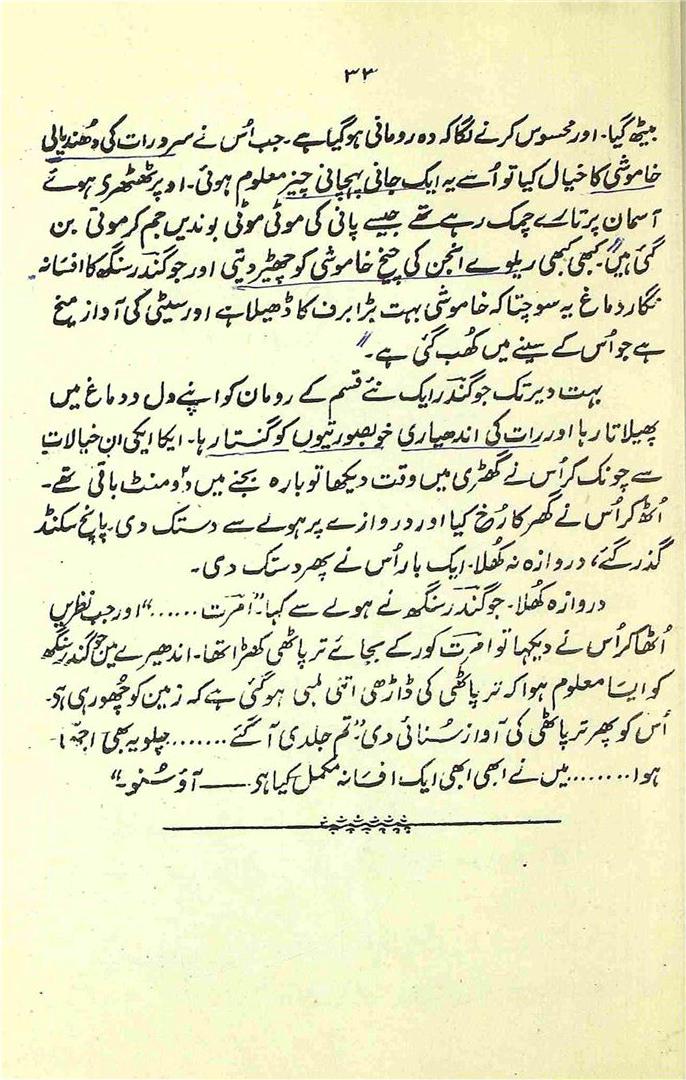 ۳۳
بیٹھ گیا۔ اور محسوس کرنے لگا کہ وہ رومانی ہو گیا ہے۔ جب اُس نے سرد رات کی دُھندیالی
خاموشی کا خیال کیا تو اُسے یہ ایک جانی پہچانی چیز معلوم ہوئی۔ اوپر ٹھٹھری ہوئے
آسمان پر تارے چمک رہے تھے جیسے پانی کی موٹی موٹی بوندیں جم کر موتی بن
گئی ہیں۔ کبھی کبھی ریلوے انجن کی چیخ خاموشی کو چھیڑ دیتی اور جوگندر سنگھ کا افسانہ
نگار دماغ یہ سوچتا کہ خاموشی بہت بڑا برف کا ڈھیلا ہے اور سیٹی کی آواز میخ
ہے جو اُس کے سینے میں کھُب گئی ہے۔"
بہت دیر تک جوگندر ایک نئے قسم کے رومان کو اپنے دل و دماغ میں
پھیلاتا رہا اور رات کی اندھیاری خوبصورتیوں کو گنتا رہا۔ ایکا ایکی ان خیالات
سے چونک کر اُس نے گھڑی میں وقت دیکھا تو بارہ بجنے میں دو منٹ باقی تھے۔
اُٹھ کر اُس نے گھر کا رُخ کیا اور دروازے پر ہولے سے دستک دی۔ پانچ سکنڈ
گذر گئے، دروازہ نہ کھلا۔ ایک بار اُس نے پھر دستک دی۔
دروازہ کھُلا۔ جوگندر سنگھ نے ہولے سے کہا۔ "امرت ......" اور جب نظریں
اُٹھا کر اُس نے دیکھا تو امرت کور کے بجائے ترپاٹھی کھڑا تھا۔ اندھیرے میں جوگندر سنگھ
کو ایسا معلوم ہوا کہ ترپاٹھی کی ڈاڑھی اتنی لمبی ہو گئی ہے کہ زمین کو چھُو رہی ہے۔
اُس کو پھر ترپاٹھی کی آواز سُنائی دی۔ "تم جلدی آ گئے ....... چلو یہ بھی اچھا
ہوا ........ میں نے ابھی ابھی ایک افسانہ مکمل کیا ہے —— آؤ سُنو۔"